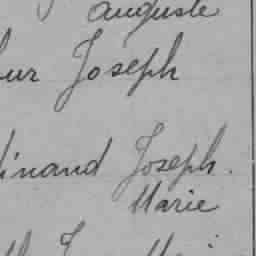 Auguste
ur Joseph
inand Joseph.
Marie